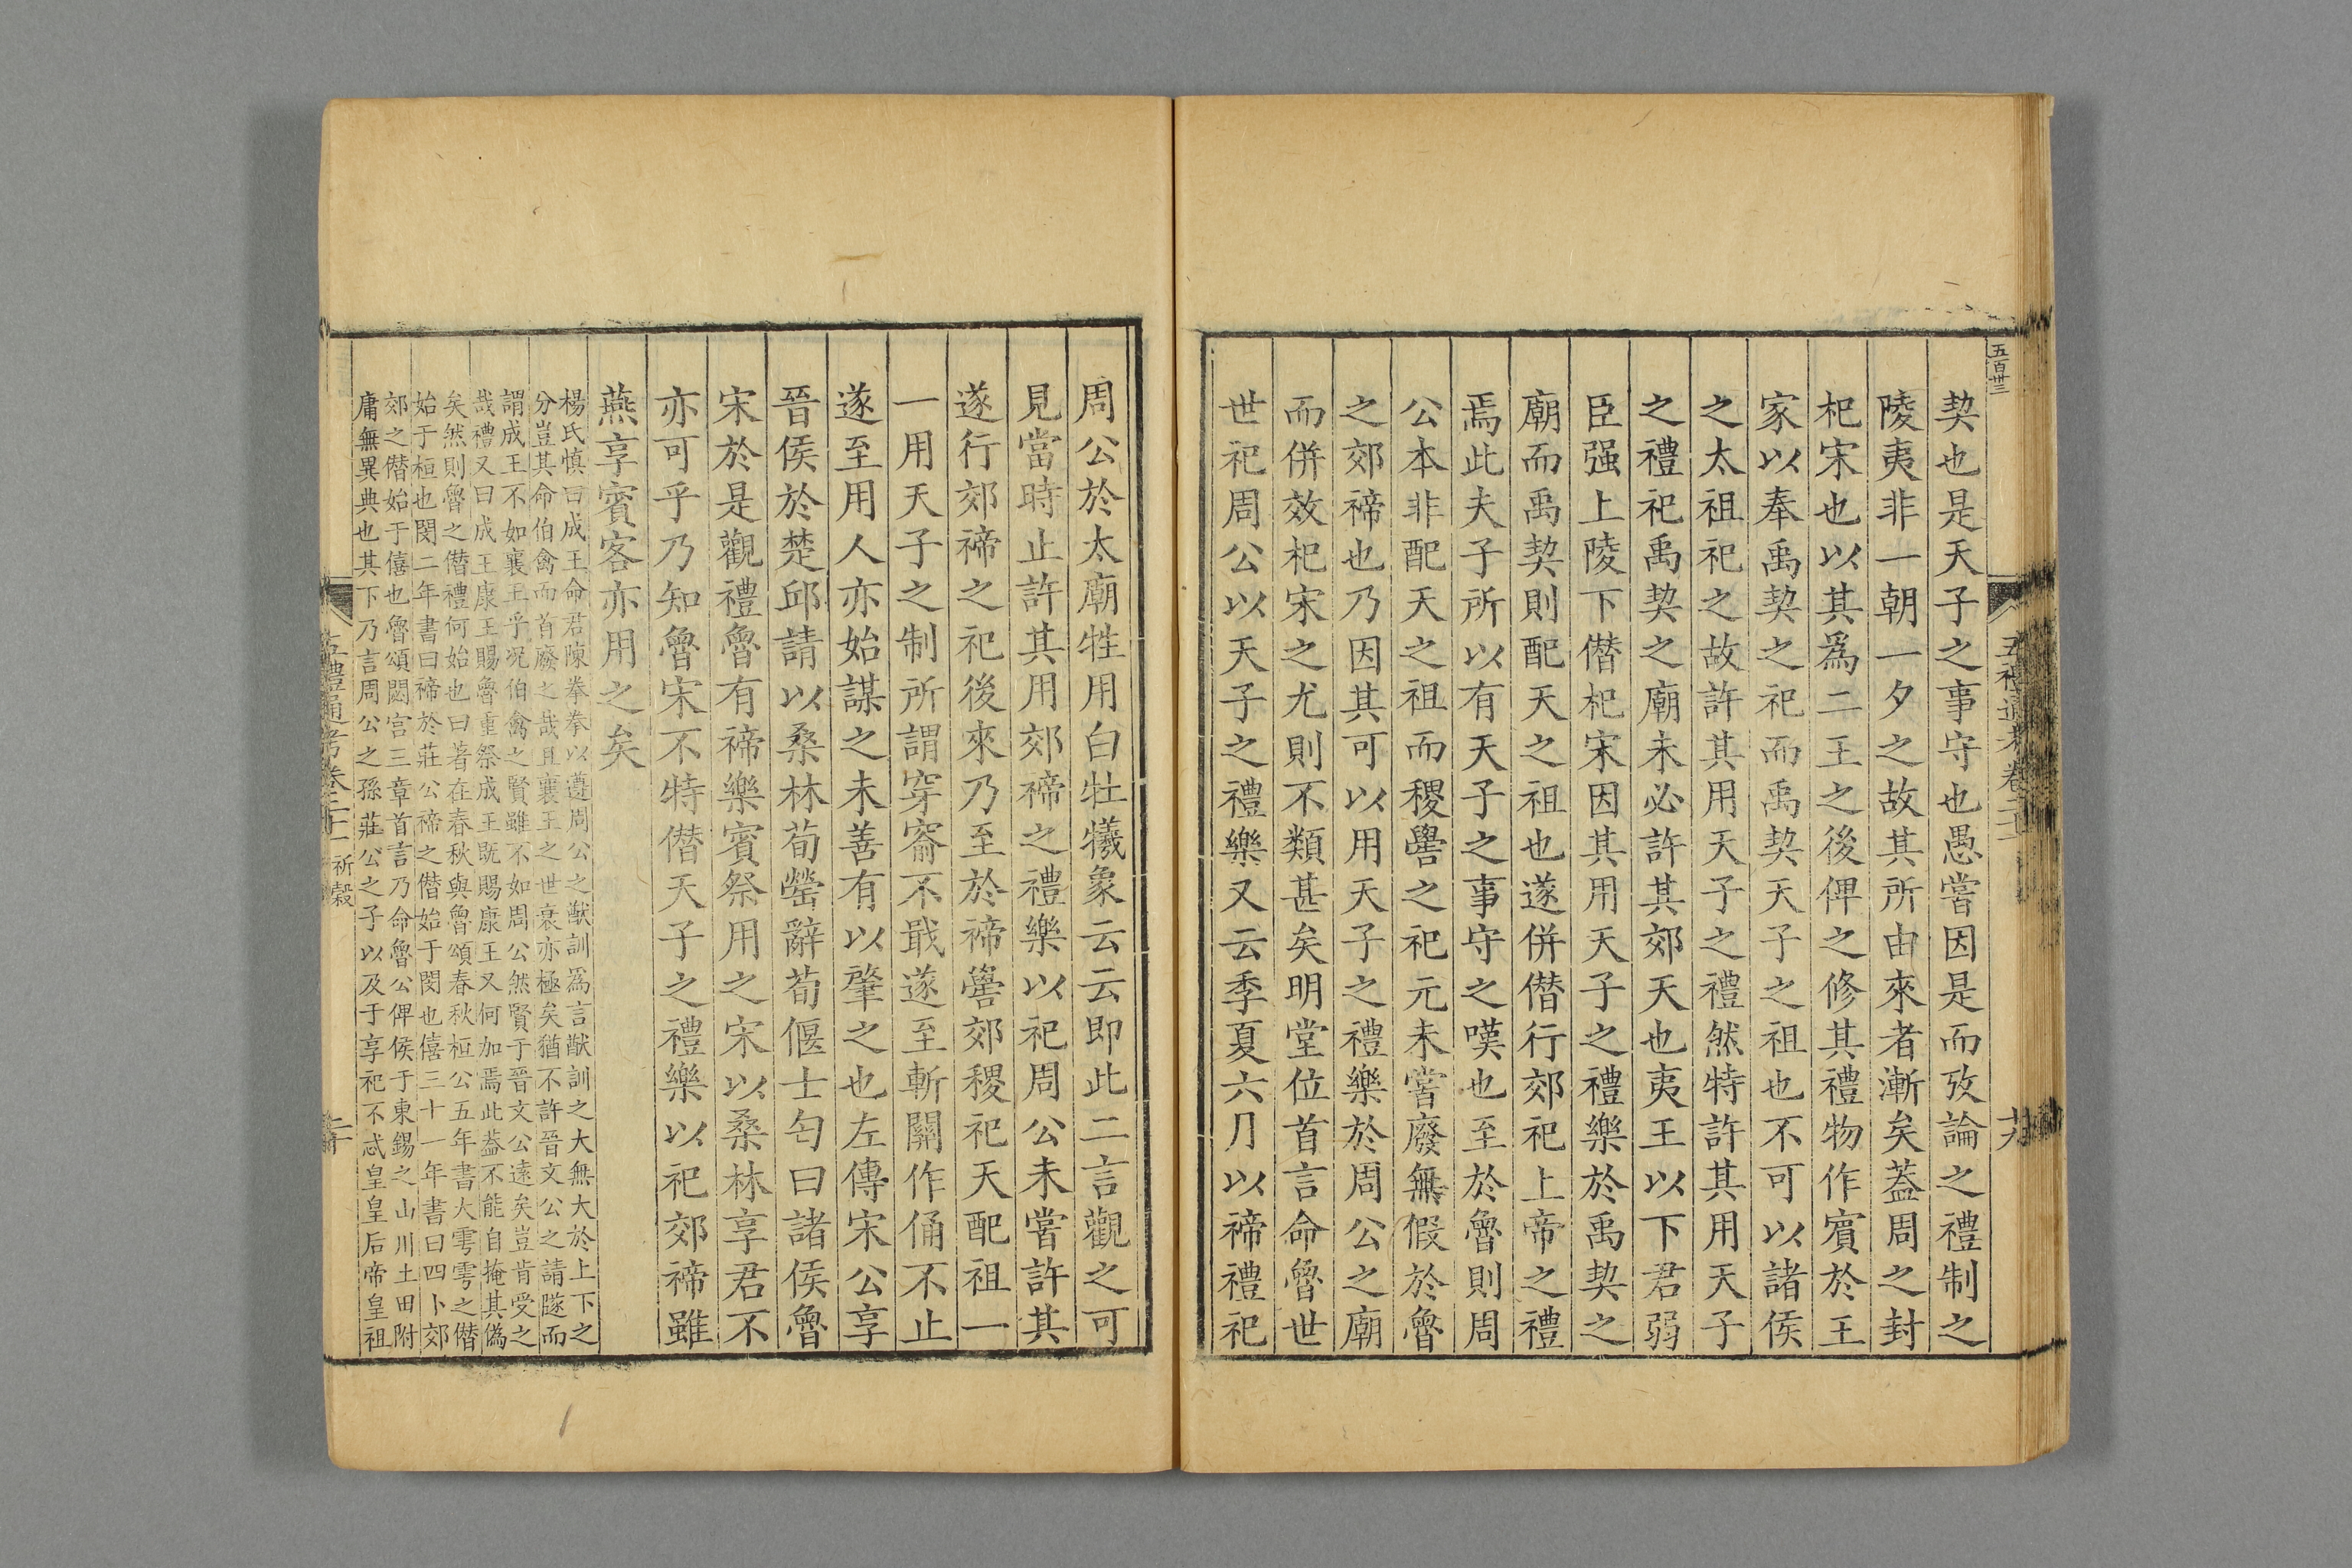 五百卅三
五禮通考卷二十一
契也是天子之事守也愚嘗因是而攷論之禮制之
陵夷非一朝一夕之故其所由來者漸矣蓋周之封
杞宋也以其爲二王之後俾之修其禮物作賓於王
家以奉禹契之祀而禹契天子之祖也不可以諸侯
之太祖祀之故許其用天子之禮然特許其用天子
之禮祀禹契之廟未必許其郊天也夷王以下君弱
臣强上陵下僭杞宋因其用天子之禮樂於禹契之
廟而禹契則配天之祖也遂併僭行郊祀上帝之禮
焉此夫子所以有天子之事守之嘆也至於魯則周
公本非配天之祖而稷嚳之祀元未嘗廢無假於魯
之郊禘也乃因其可以用天子之禮樂於周公之廟
而併效杞宋之尤則不類甚矣明堂位首言命魯世
世祀周公以天子之禮樂又云季夏六月以禘禮祀
周公於太廟牲用白牡犧象云云即此二言觀之可
見當時止許其用郊禘之禮樂以祀周公未嘗許其
遂行郊禘之祀後來乃至於禘嚳郊稷祀天配祖一
一用天子之制所謂穿窬不戢遂至斬關作俑不止
遂至用人亦始謀之未善有以肇之也左傳宋公享
晉侯於楚邱請以桑林荀罃辭荀偃士匄曰諸侯魯
宋於是觀禮魯有禘樂賓祭用之宋以桑林享君不
亦可乎乃知魯宋不特僭天子之禮樂以祀郊禘雖
燕享賓客亦用之矣
楊氏慎曰成王命君陳拳拳以遵周公之猷訓爲言猷訓之大無大於上下之
分豈其命伯禽而首廢之哉且襄王之世衰亦極矣猶不許晉文公之請隧而
謂成王不如襄王乎况伯禽之賢雖不如周公然賢于晉文公遠矣豈肯受之
哉禮又曰成王康王賜魯重祭成王既賜康王又何加焉此蓋不能自掩其僞
矣然則魯之僭禮何始也曰著在春秋與魯頌春秋桓公五年書大雩雩之僭
始于桓也閔二年書曰禘於莊公禘之僭始于閔也僖三十一年書曰四卜郊
郊之僭始于僖也魯頌閟宫三章首言乃命魯公俾侯于東錫之山川土田附
庸無異典也其下乃言周公之孫莊公之子以及于享祀不忒皇皇后帝皇祖
五禮通考卷二十一 祈穀